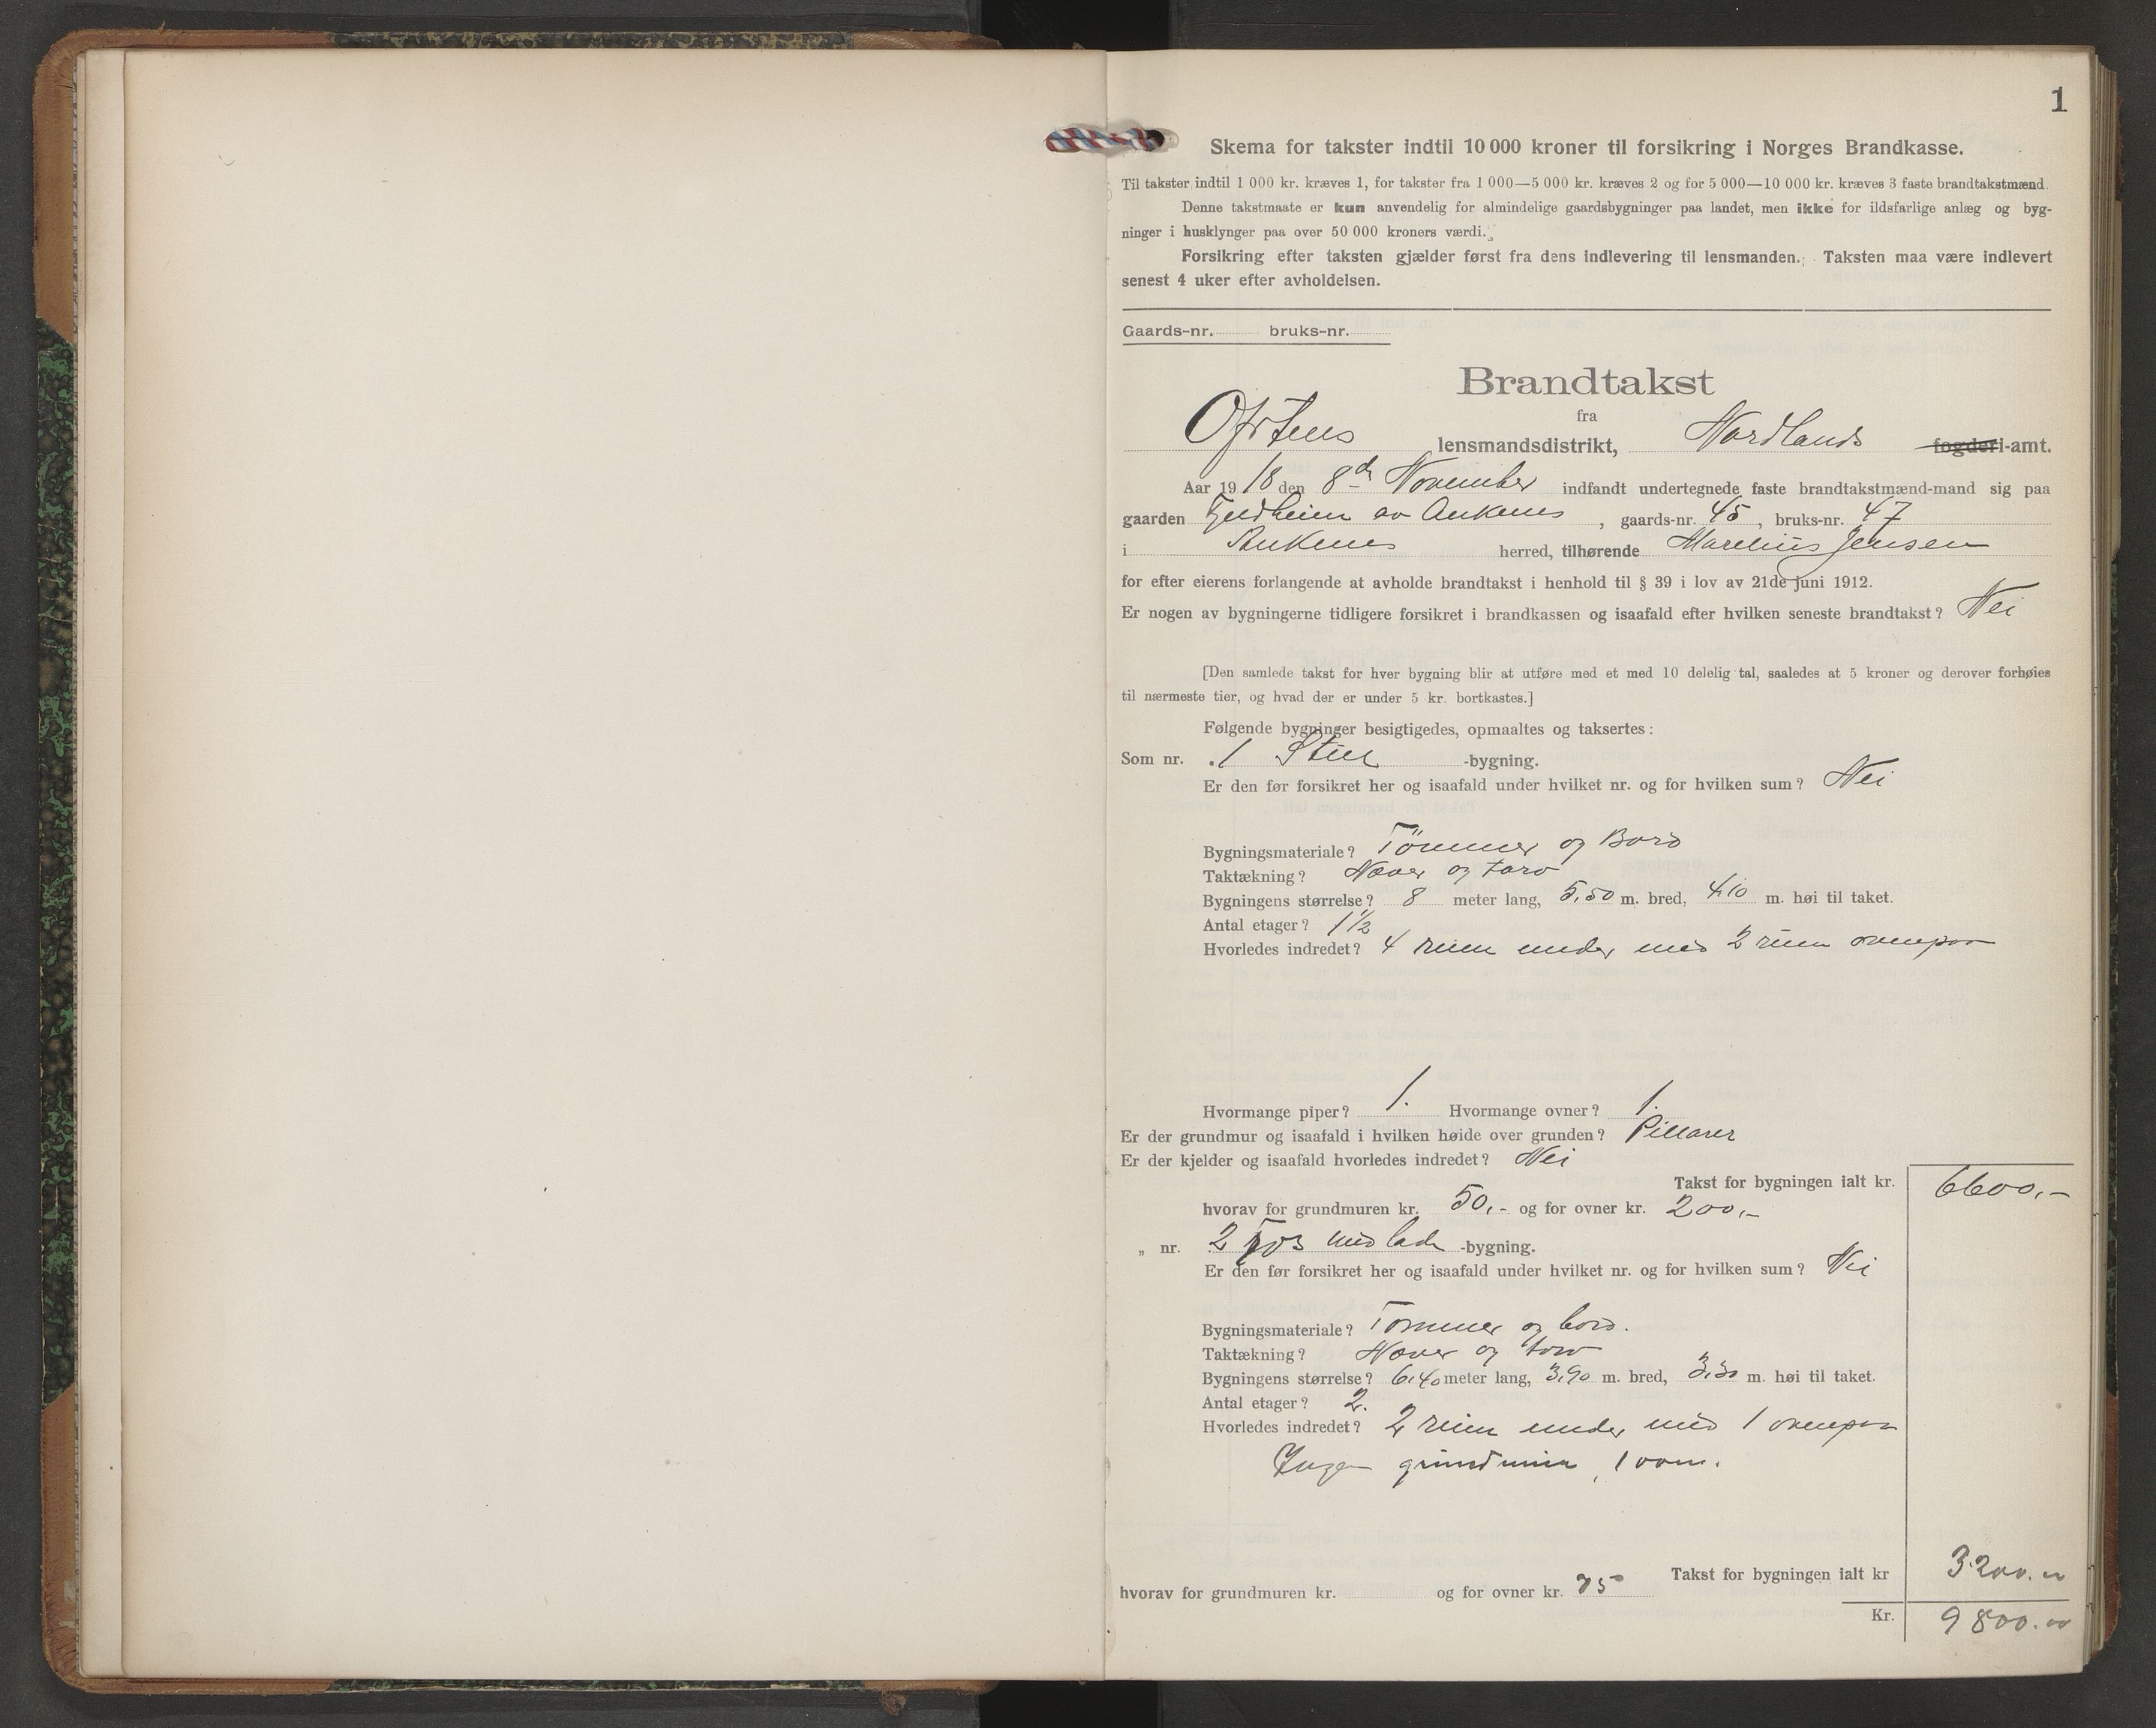 1
Skema for takster indtil 10 000 kroner til forsikring i Norges Brandkasse.
Til takster indtil 1 000 kr. kræves 1, for takster fra 1 000—5 000 kr. kræves 2 og for 5 000—10 000 kr. kræves 3 faste brandtakstmænd.
Denne takstmaate er kun anvendelig for almindelige gaardsbygninger paa landet, men ikke for ildsfarlige anlæg og byg-
ninger i husklynger paa over 50 000 kroners værdi.
Forsikring efter taksten gjælder først fra dens indlevering til lensmanden. Taksten maa være indlevert
senest 4 uker efter avholdelsen.
Gaards-nr. bruks-nr.
Brandtakst
fra
Ofotens lensmandsdistrikt, Nordlands fogderi-amt.
Aar 1918 den 8de November indfandt undertegnede faste brandtakstmænd-mand sig paa
gaarden Fjeldheim av Ankenes, gaards-nr. 45, bruks-nr. 47
i Ankenes herred, tilhørende Marelius Jensen
for efter eierens forlangende at avholde brandtakst i henhold til § 39 i lov av 21de juni 1912.
Er nogen av bygningerne tidligere forsikret i brandkassen og isaafald efter hvilken seneste brandtakst? Nei
[Den samlede takst for hver bygning blir at utføre med et med 10 delelig tal, saaledes at 5 kroner og derover forhøies
til nærmeste tier, og hvad der er under 5 kr. bortkastes.]
Følgende bygninger besigtigedes, opmaaltes og taksertes:
Som nr. 1 Stue -bygning.
Er den før forsikret her og isaafald under hvilket nr. og for hvilken sum? Nei
Bygningsmateriale? Tömmer og Bord
Taktækning? Næver og torv
Bygningens størrelse? 8 meter lang, 5,50 m. bred, 4,10 m. høi til taket.
Antal etager? 1½
Hvorledes indredet? 4 rum under med 2 rum ovenpaa
Hvormange piper? 1. Hvormange ovner? 1.
Er der grundmur og isaafald i hvilken høide over grunden? Pillarer
Er der kjelder og isaafald hvorledes indredet? Nei
Takst for bygningen ialt kr. 6600,-
hvorav for grundmuren kr. 50,- og for ovner kr. 200,-
„ nr. 2 Fjös med lade -bygning.
Er den før forsikret her og isaafald under hvilket nr. og for hvilken sum? Nei
Bygningsmateriale? Tømmer og bord.
Taktækning? Næver og torv
Bygningens størrelse? 6,40 meter lang, 3,90 m. bred, 3,30 m. høi til taket.
Antal etager? 2.
Hvorledes indredet? 2 rum under med 1 ovenpaa
Ingen grundmur, 1 ovn.
Takst for bygningen ialt kr 3200.00
hvorav for grundmuren kr. og for ovner kr. 75
Kr. 9800.00